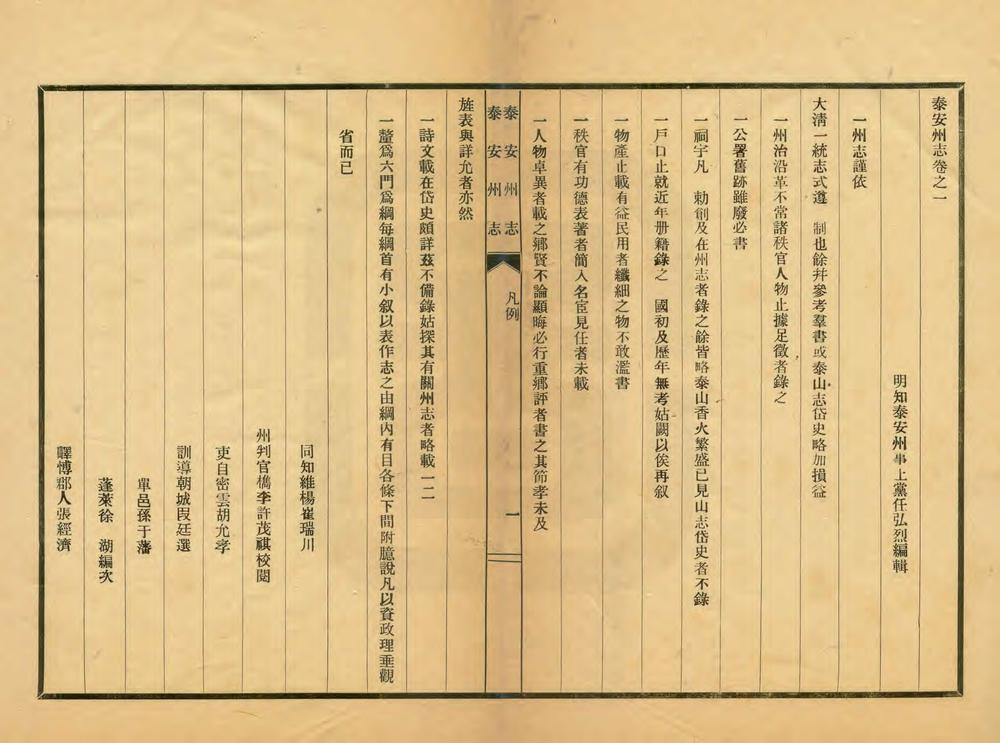 泰安州志卷之一
明知泰安州事上黨任弘烈編輯
一州志謹依
大淸一統志式遵　制也餘幷參考羣書或泰山志岱史略加損益
一州治沿革不常諸秩官人物止據足徵者錄之
一公署舊跡雖廢必書
一祠宇凡　勅創及在州志者錄之餘皆略泰山香火繁盛已見山志岱史者不錄
一戶口止就近年册籍錄之　國初及歷年無考姑闕以俟再叙
一物產止載有益民用者纖細之物不敢濫書
一秩官有功德表著者簡入名宦見任者未載
一人物卓異者載之鄕賢不論顯晦必行重鄕評者書之其節孝未及
泰安州志　凡例　一
泰安州志
旌表與詳允者亦然
一詩文載在岱史頗詳茲不備錄姑探其有關州志者略載一二
一釐爲六門爲綱每綱首有小叙以表作志之由綱內有目各條下間附臆說凡以資政理垂觀
省而已
同知維楊崔瑞川
州判官橋李許茂祺校閱
吏目密雲胡允孝
訓導朝城段廷選
單邑孫于藩
蓬萊徐　湖編次
驛博郡人張經濟